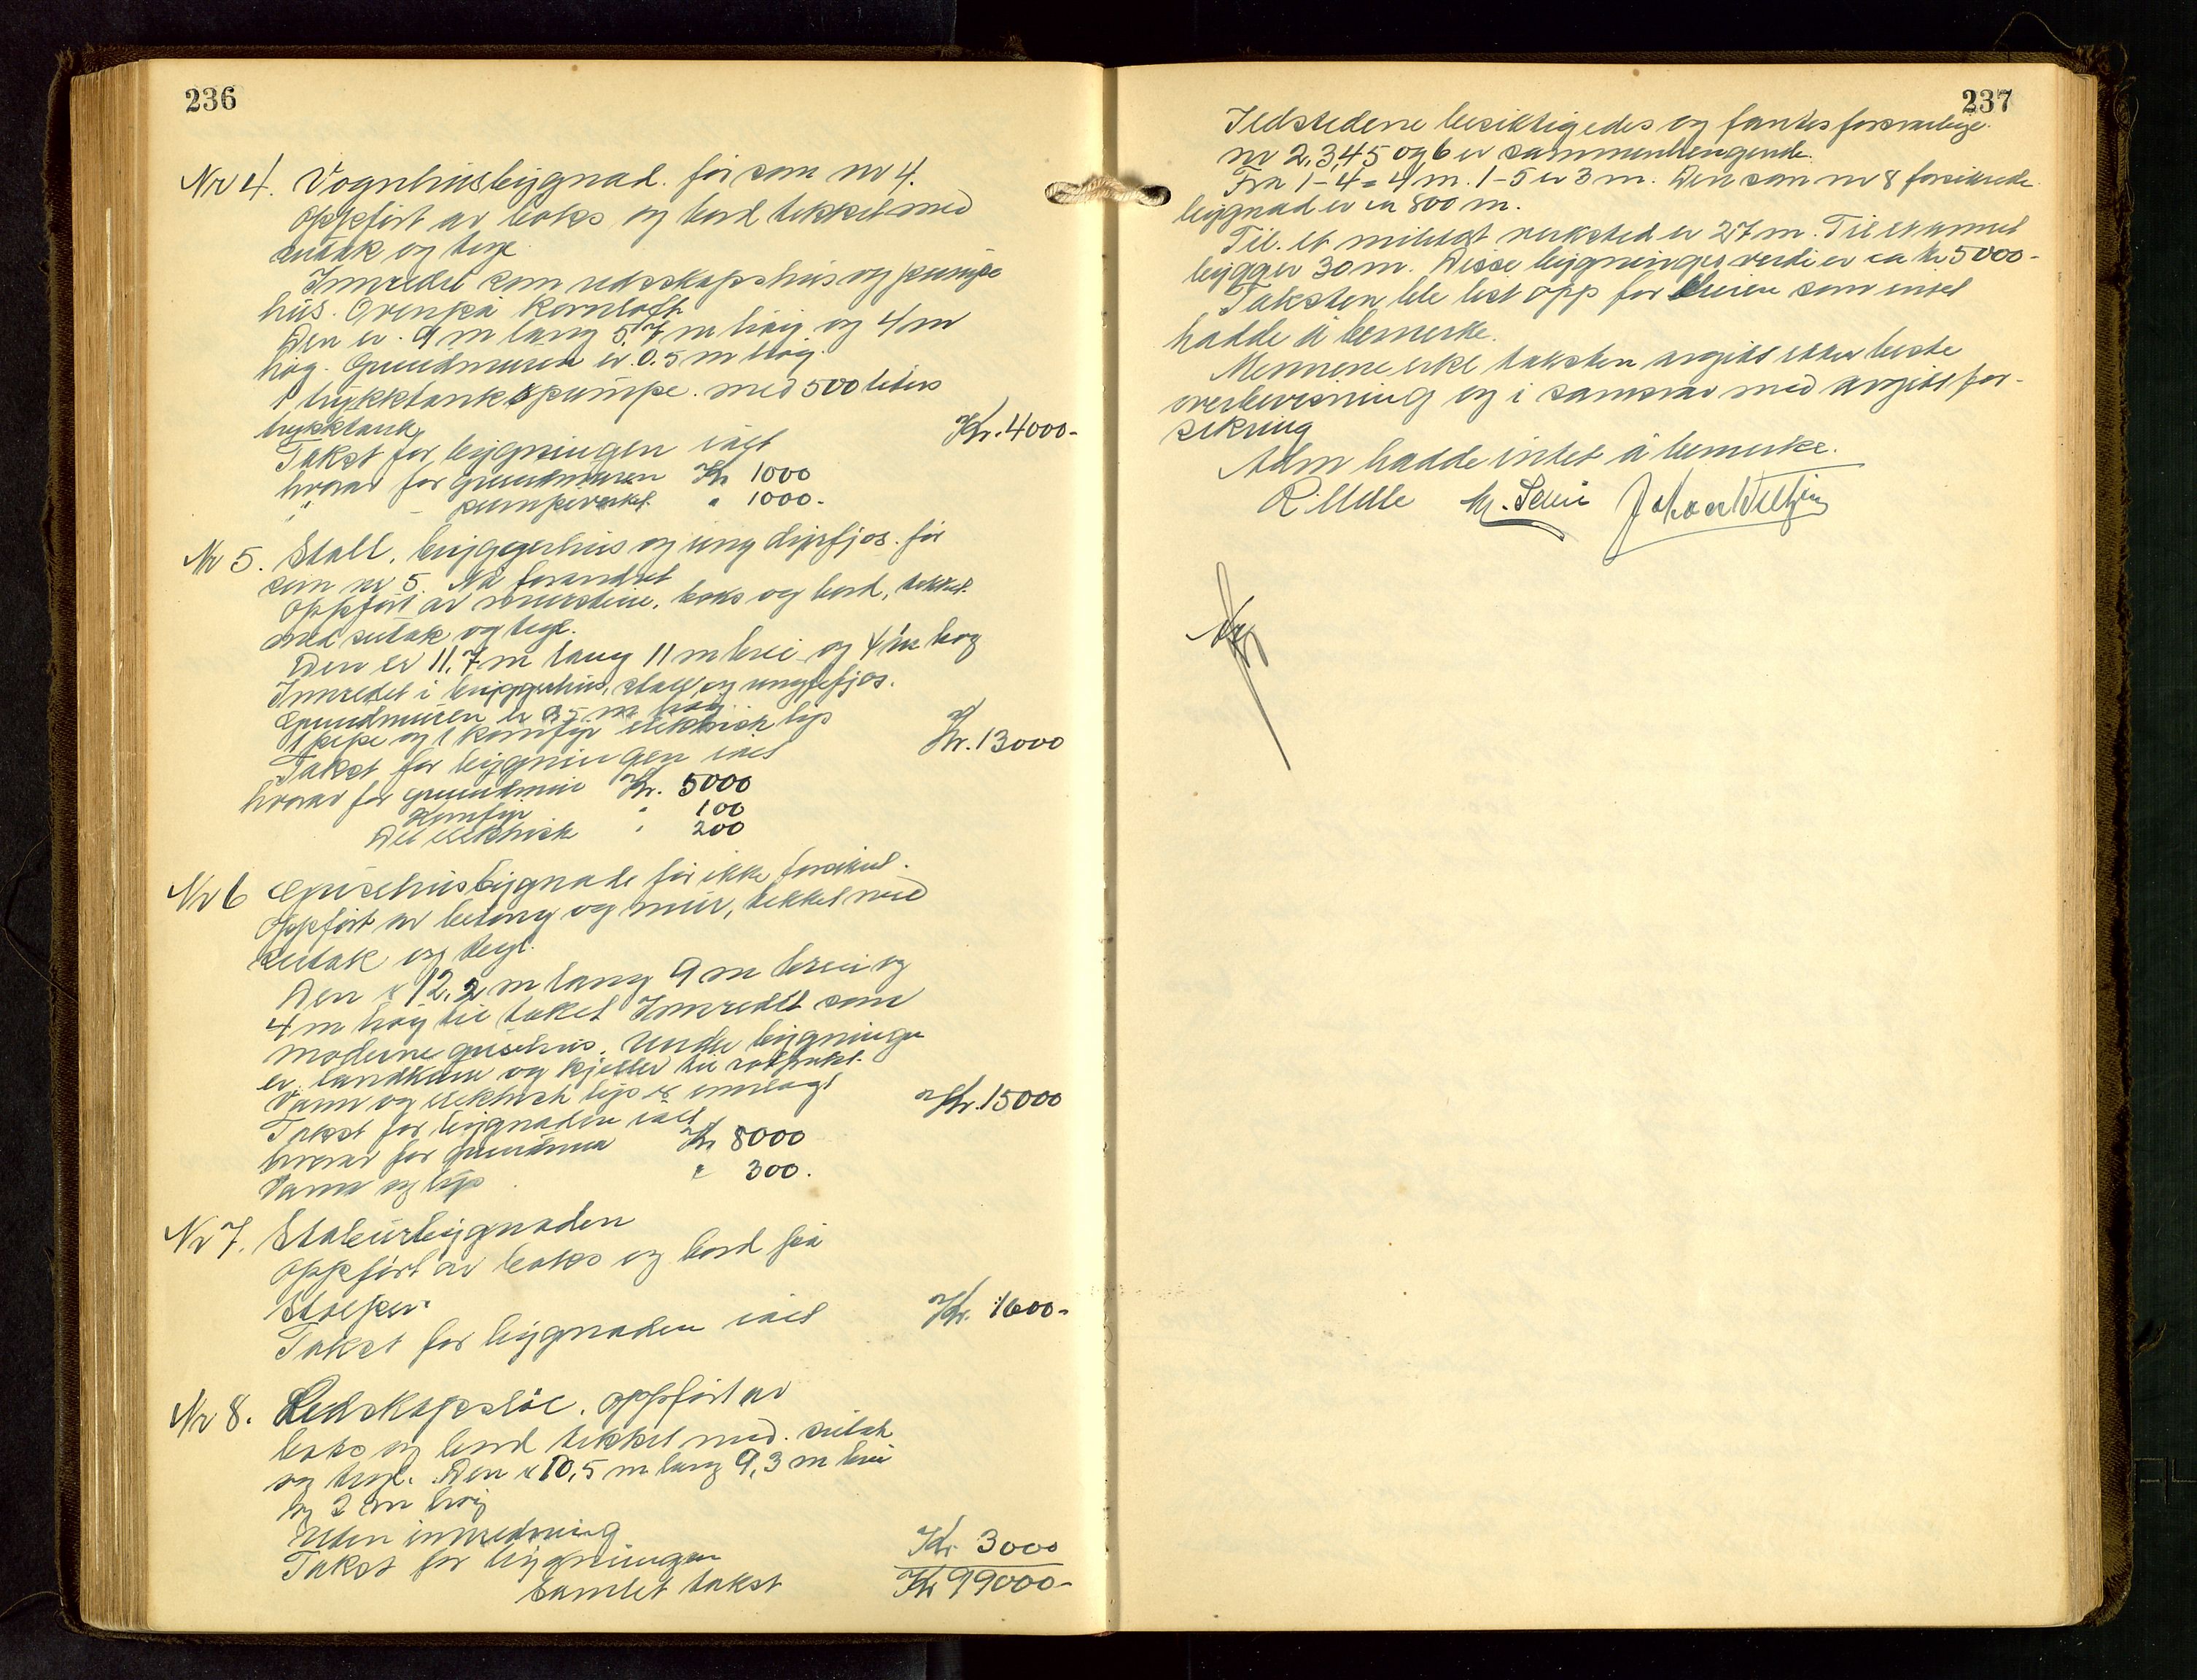 236
Nr 4. Vognhusbygnad. før som nr 4.
Oppført av boks og bord tekket med
sutak og tegl
Innredet som redskapshus og pumpe
hus. Ovenpå kornloft
Den er 9 m lang 5,7 m brei og 4 m
høg. Grundmuren er 0.5 m høg.
1 trykktankspumpe med 500 liters
trykktank
Takst for bygningen ialt Kr. 4000-
hvorav for grundmuren Kr 1000
" - pumpeverket " 1000-
Nr 5. Stall, bryggerhus og ungdyrfjøs. før
som nr 5. Nå forandret
Oppført av mursteine, boks og bord, tekket
med sutak og tegl.
Den er 11,7 m lang 11 m brei og 4 m høg
Innredet i bryggerhus, stall og ungdyrfjøs.
Grundmuren er 0,5 m høg
1 pipe og 1 komfyr elektrisk lys
Takst for bygningen ialt Kr. 13000
hvorav for grundmur Kr. 5000
Komfyr " 100
Det elektriske " 200
Nr 6 Grisehusbygnade før ikke forsikret.
Oppført av betong og mur, tekket med
sutak og tegl.
Den er 12,2 m lang 9 m brei og
4 m høg til taket Innredet som
moderne grisehus. Under bygningen
er landkum og kjeller til rotfrukt.
Vann og elektrisk lys er innlagt
Takst for bygnaden ialt Kr. 15000
hvorav for grundmur Kr 8000
Vann og lys " 300.
Nr 7. Stabursbygnaden
Oppført av boks og bord på
Stolper.
Takst for bygnaden ialt Kr. 1600-
Nr 8. Redskapsløe. oppført av
boks og bord tekket med sutak
og tegl. Den er 10,5 m lang 9,3 m brei
og 2 m høg
Uten innredning
Takst for bygningen Kr 3000
Samlet takst Kr 99000-
237
Ildstedene besiktigedes og fantes forsvarlige.
nr 2,3,4,5 og 6 er sammenhengende.
Fra 1-4 = 4 m. 1-5 er 3 m. Den som nr 8 forsikrede
bygnad er ca 800 m.
Til et verksted er 27 m. Til et annet
bygg er 30 m. Disse bygningers verdi er ca kr 5000-
Taksten ble lest opp for eieren som intet
hadde å bemerke.
Mennene erkl taksten avgitt etter beste
overbevisning og i samsvar med avgitt for-
sikring
Adm hadde intet å bemerke.